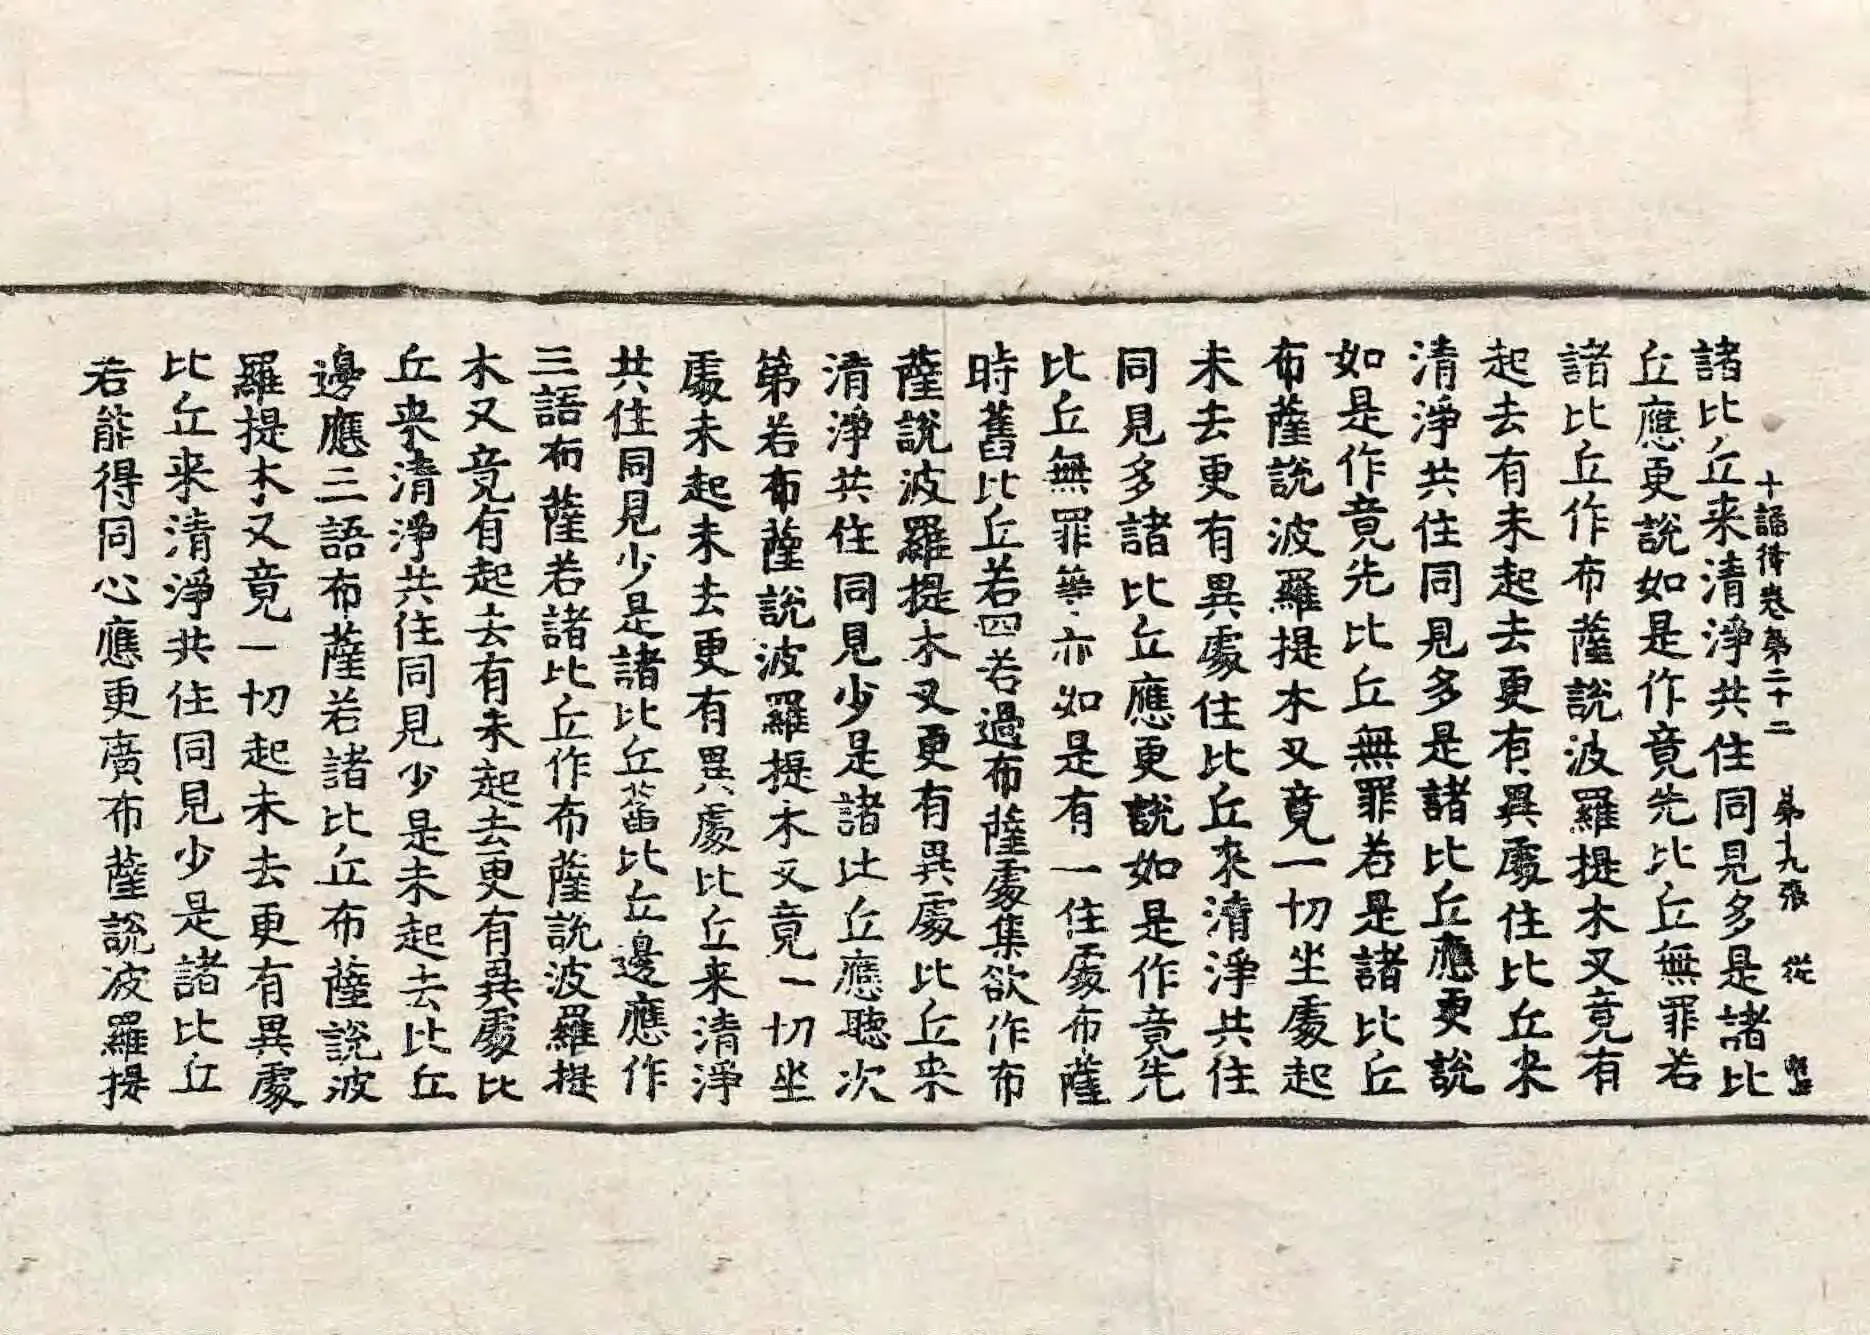 十誦律卷第二十二 第九張 從
諸比丘来清淨共住同見多是諸比
丘應更說如是作竟先比丘無罪若
諸比丘作布薩說波羅提木叉竟有
起去有未起去更有異處住比丘来
清淨共住同見多是諸比丘應更說
如是作竟先比丘無罪若是諸比丘
布薩說波羅提木叉竟一切坐處起
未去更有異處住比丘来清淨共住
同見多諸比丘應更說如是作竟先
比丘無罪等亦如是有一住處布薩
時舊比丘若四若過布薩處集欲作布
薩說波羅提木叉更有異處比丘来
清淨共住同見少是諸比丘應聽次
第若布薩說波羅提木叉竟一切坐
處未起未去更有異處比丘来清淨
共住同見少是諸比丘舊比丘邊應作
三語布薩若諸比丘作布薩說波羅提
木叉竟有起去有未起去更有異處比
丘来清淨共住同見少是未起去比丘
邊應三語布薩若諸比丘布薩說波
羅提木叉竟一切起未去更有異處
比丘来清淨共住同見少是諸比丘
若能得同心應更廣布薩說波羅提